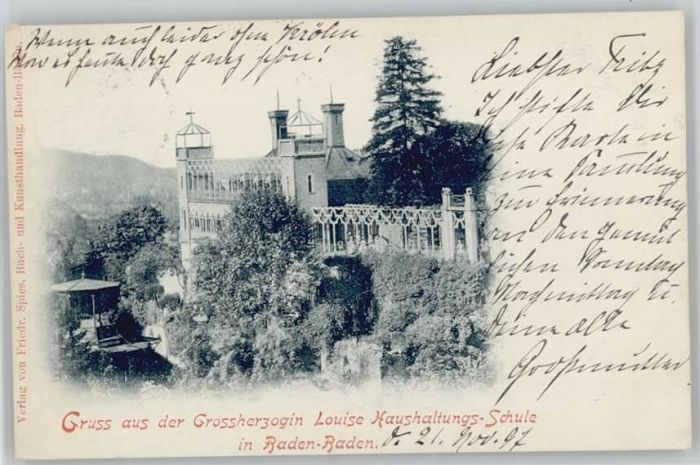 Wenn auch leider ohne Verölen
war es heute doch ganz schön!
Liebster Fritz
Ich stifte Dir
diese Karte in
eine Sammlung
zur Erinnerung
an den gemüt
lichen Sonntag
Nachmittag u.
Deine alte
Großmutter
Verlag von Friedr. Spies, Buch- und Kunsthandlung, Baden-Baden.
Gruss aus der Grossherzogin Louise Haushaltungs-Schule
in Baden-Baden.
d. 21. Nov. 97